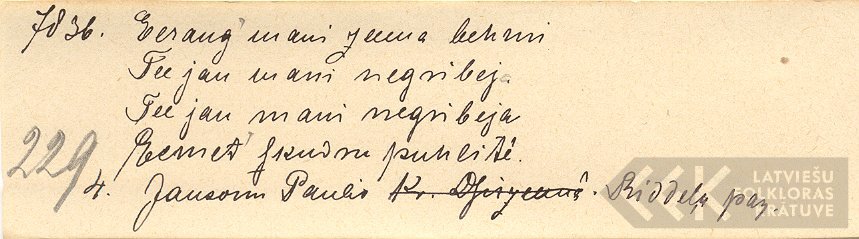 7836. Eerang' mani zeema behrni
Tee jau mani negribej.
Tee jau mani negribeja
Eemet' skudru puhlitē.
229
4. Jansonu Paulis Kr. Dsirzeemā. Riddeļu pag.
LATVIEŠU
FOLKLORAS
KRĀTUVE